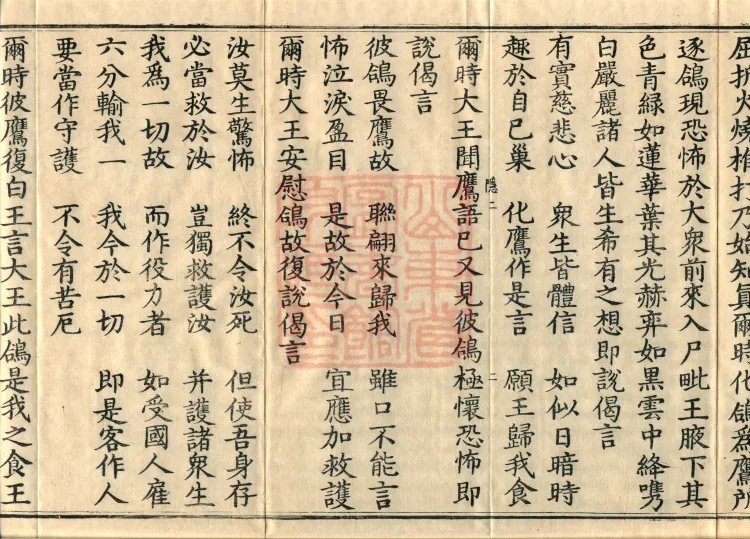 屈折火燒椎打乃始知真爾時化鴿為鷹所
逐鴿現恐怖於大衆前來入尸毗王腋下其
色青緑如蓮華葉其光赫弈如黒雲中絳㗲
白嚴麗諸人皆生希有之想即說偈言
有實慈悲心　衆生皆體信　如似日暗時
趣於自已巢　化鷹作是言　願王歸我食
爾時大王聞鷹語已又見彼鴿極懷恐怖即
隱二　二
說偈言
彼鴿畏鷹故　聯翩來歸我　雖口不能言
怖泣淚盈目　是故於今日　宜應加救護
爾時大王安慰鴿故復說偈言
汝莫生驚怖　終不令汝死　但使吾身存
必當救於汝　豈獨救護汝　并護諸衆生
我爲一切故　而作役力者　如受國人雇
六分輸我一　我今於一切　即是客作人
要當作守護　不令有苦厄
爾時彼鷹復白王言大王此鴿是我之食王